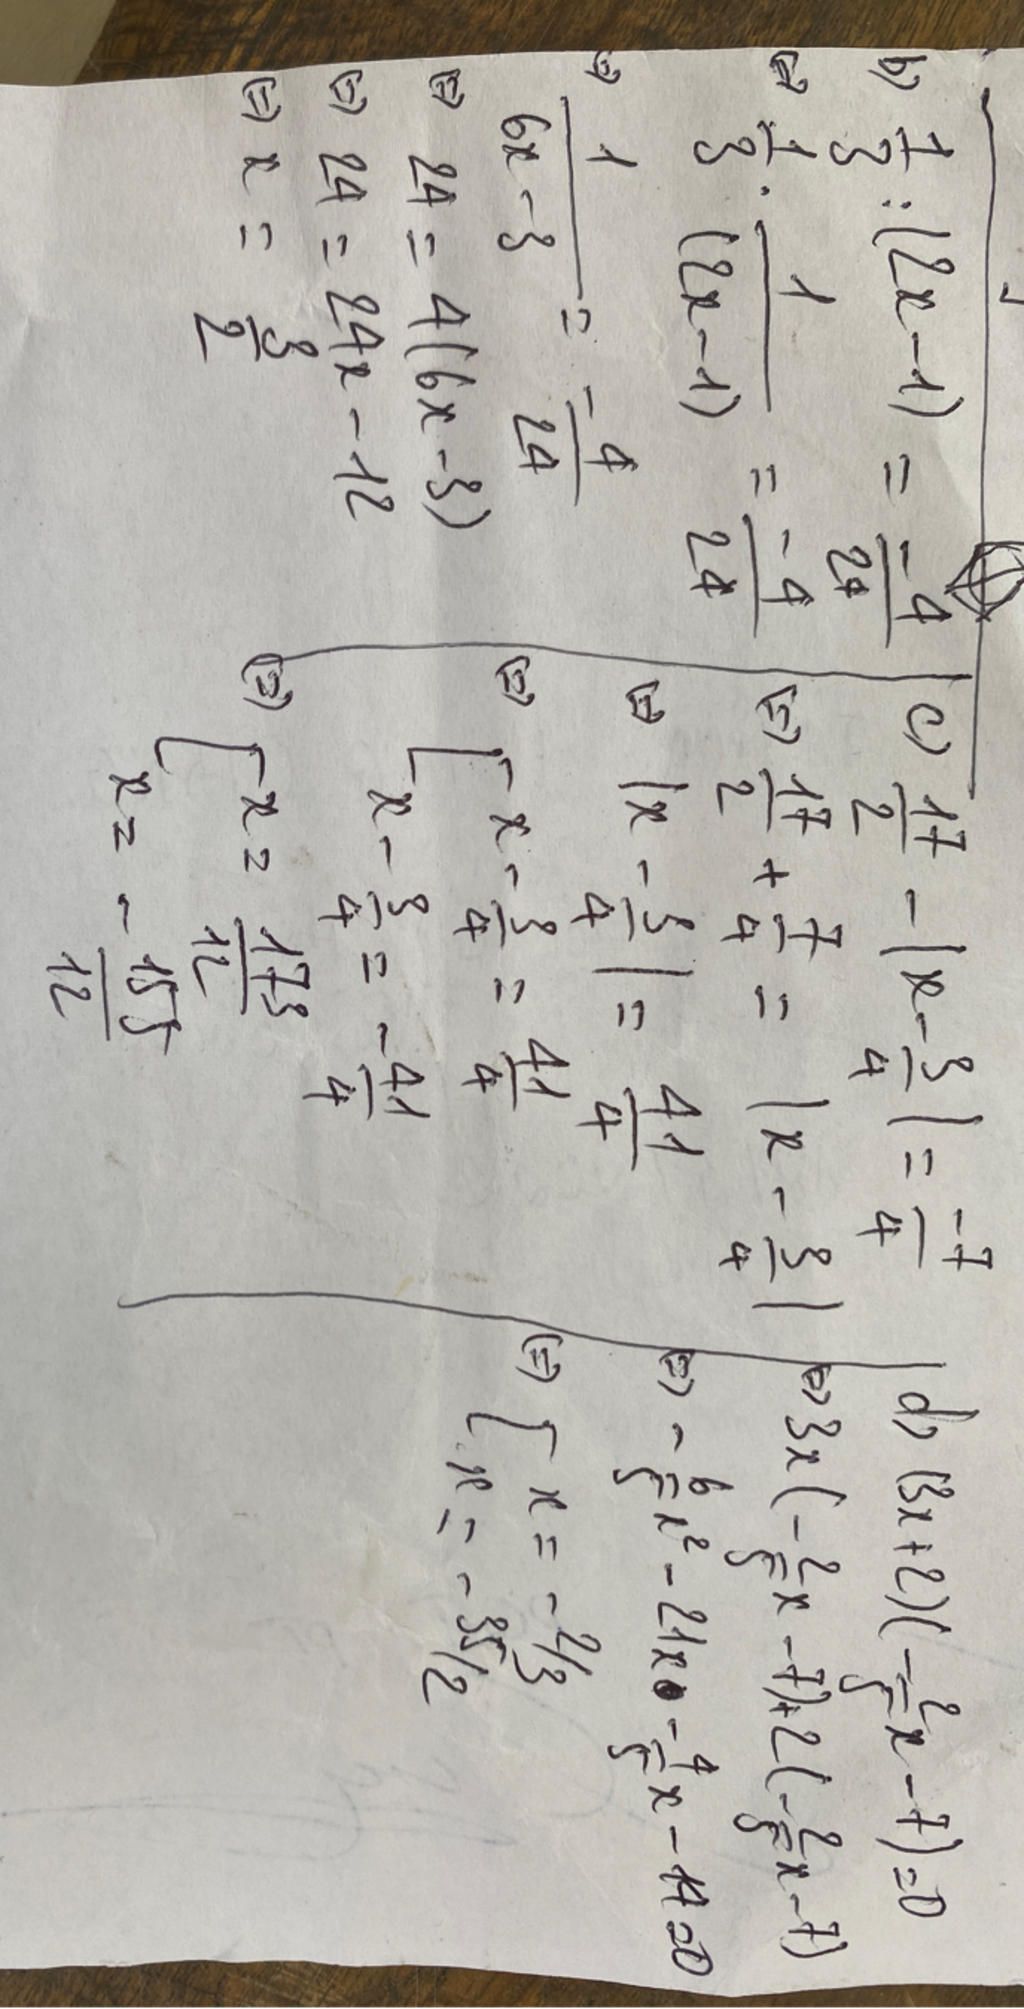 b) 1/3 : (2x - 1) = -4/24
⇔ 1/3 . 1/(2x - 1) = -4/24
⇔ 1/(6x - 3) = -4/24
⇔ 24 = 4(6x - 3)
⇔ 24 = 24x - 12
⇔ x = 3/2
c) 17/2 - |x - 3/4| = -7/4
⇔ 17/2 + 7/4 = |x - 3/4|
⇔ |x - 3/4| = 41/4
⇔ [ x - 3/4 = 41/4
x - 3/4 = -41/4
⇔ [ x = 173/12
x = -155/12
d) (3x + 2)(-2/5x - 7) = 0
⇔ 3x(-2/5x - 7) + 2(-2/5x - 7)
⇔ -6/5x² - 21x - 4/5x - 14 = 0
⇔ [ x = -2/3
x = -35/2